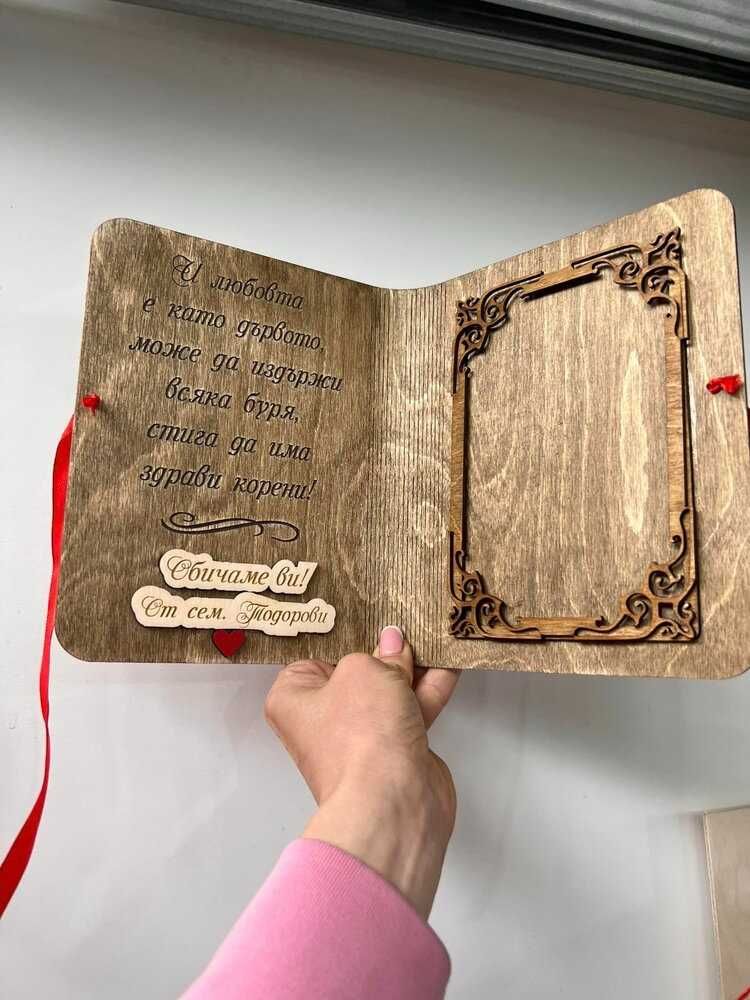 И любовта
е като дървото,
може да издържи
всяка буря,
стига да има
здрави корени!
Обичаме ви!
От сем. Тодорови